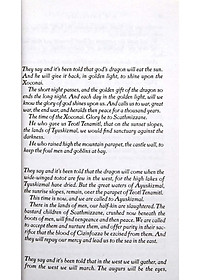 They say and it's been told that god's dragon will eat the sun.
And he will give it back, in golden light, to shine upon the
Xoconai.
The short night passes, and the golden gift of the dragon so
ends the long night. And each day in the golden light, will we
know the glory of god shines upon us. And calls us to war, great
war, the end war, and heralds then peace for a thousand years.
The time of the Xoconai. Glory be to Scathmizzane.
He who gave us Teotl Tenamitl, that on the sunset slopes,
the lands of Tyuskixmal, we would find sanctuary against the
darkness.
He who raised high the mountain parapet, the castle wall, to
keep the foul men and goblins at bay.
They say and it's been told that the dragon will come when the
wide-winged totot are few in the west, for the high lakes of
Tyuskixmal have dried. But the great waters of Ayuskixmal,
the sunrise slopes, remain, over the parapet of Teotl Tenamitl.
This time is now, and we are called to Ayuskixmal.
There in the lands of men, our half-kin are slaughtered. The
bastard children of Scathmizzane, crushed now beneath the
boots of men, will find vengeance and then peace. We are called
to accept them and nurture them, and offer purity in their sac-
rifice that the blood of Cizinfozza be excised from them. And
they will repay our mercy and lead us to the sea in the east.
They say and it's been told that in the west we will gather, and
from the west we will march. The augurs will be the eyes,